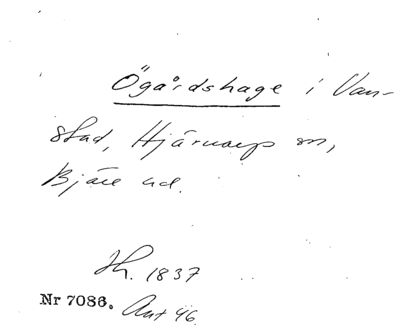 Ögårdshage i Van-
stad, Hjärnarp sn,
Bjäre hd.
Jh. 1837
Nr 7086. Ant 46